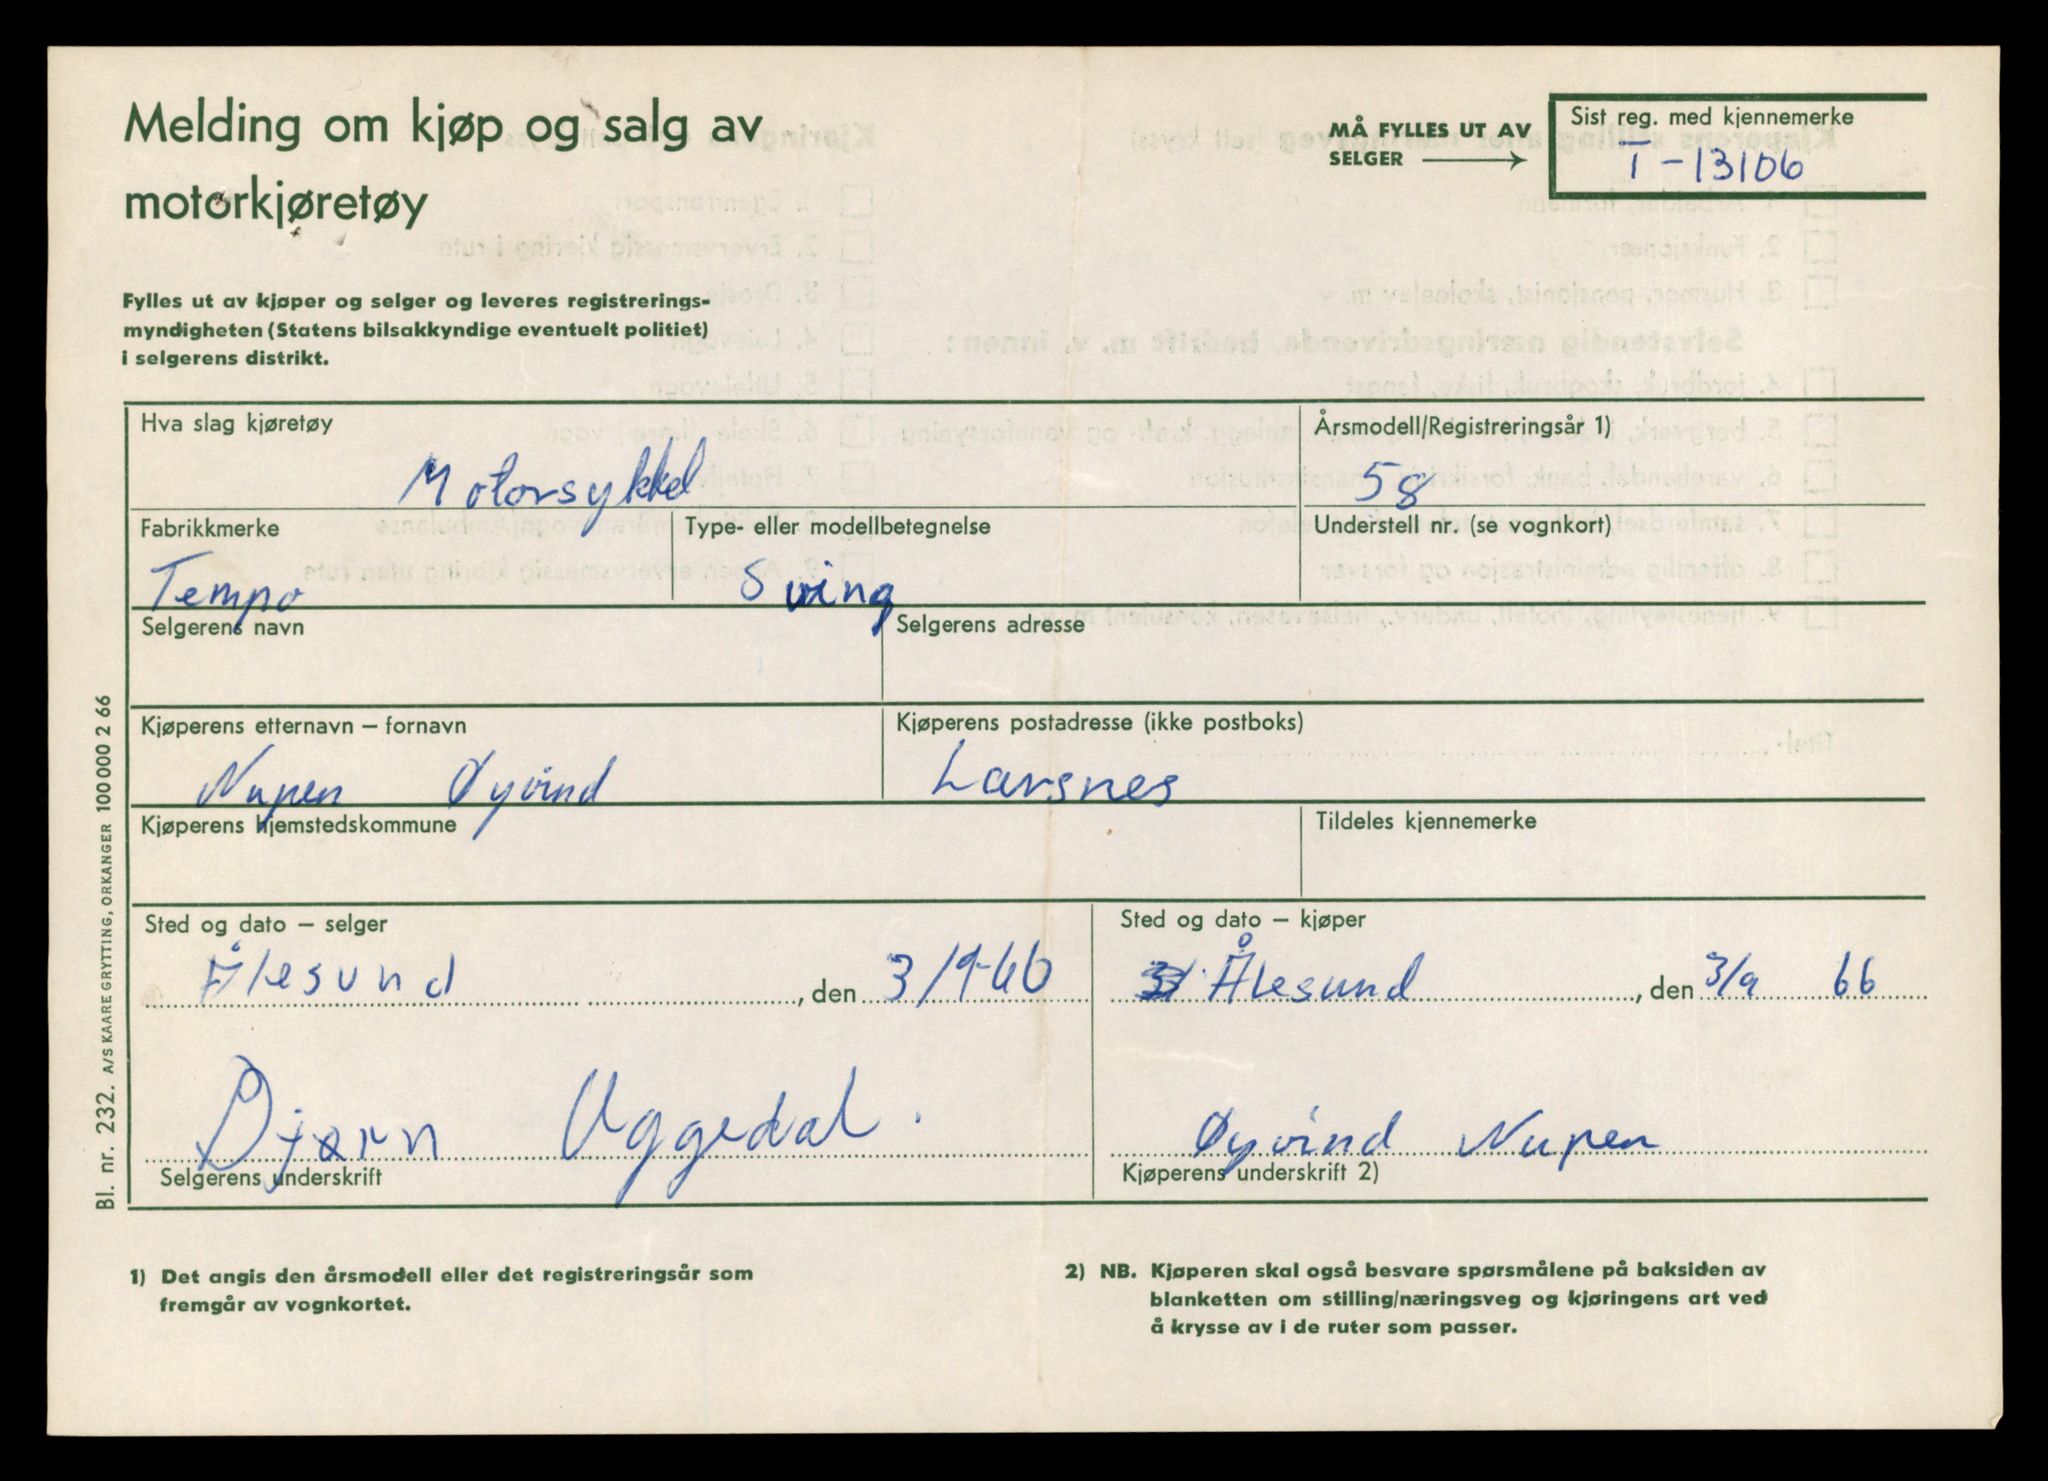 Melding om kjøp og salg av
motorkjøretøy
MÅ FYLLES UT AV
SELGER
Sist reg. med kjennemerke
T-13106
Fylles ut av kjøper og selger og leveres registrerings-
myndigheten (Statens bilsakkyndige eventuelt politiet)
i selgerens distrikt.
Hva slag kjøretøy
Motorsykkel
Årsmodell/Registreringsår 1)
58
Fabrikkmerke
Tempo
Type- eller modellbetegnelse
Swing
Understell nr. (se vognkort)
Selgerens navn
Selgerens adresse
Kjøperens etternavn – fornavn
Nupen Øyvind
Kjøperens postadresse (ikke postboks)
Larsnes
Kjøperens hjemstedskommune
Tildeles kjennemerke
Sted og dato – selger
Ålesund, den 3/9-66
Sted og dato – kjøper
Ålesund, den 3/9 66
Bjørn Uggedal.
Selgerens underskrift
Øyvind Nupen
Kjøperens underskrift 2)
Bl. nr. 232. A/S KAARE GRYTTING, ORKANGER 100 000 2 66
1) Det angis den årsmodell eller det registreringsår som
fremgår av vognkortet.
2) NB. Kjøperen skal også besvare spørsmålene på baksiden av
blanketten om stilling/næringsveg og kjøringens art ved
å krysse av i de ruter som passer.